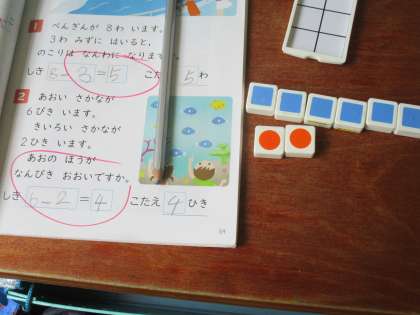 1 ぺんぎんが 8わ います。
3わ みずに はいると、
のこりは なんわに なりますか。
しき 8-3=5 こたえ 5わ
2 あおい さかなが
6ぴき います。
きいろい さかなが
2ひき います。
あおの ほうが
なんびき おおいですか。
しき 6-2=4 こたえ 4ひき